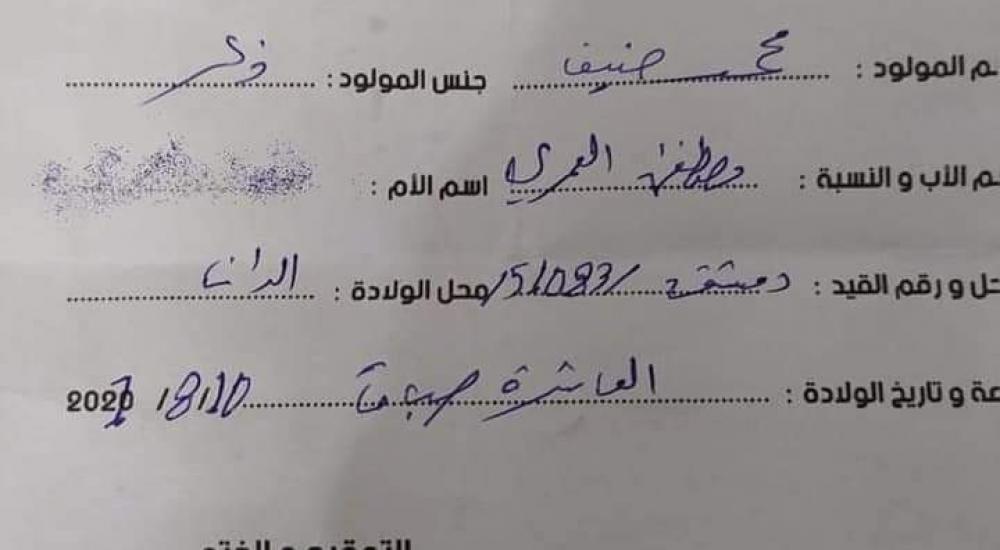 ـم المولود : محمد حنيف جنس المولود : ذكر
ـم الأب و النسبة : مصطفى العمري اسم الأم :
ـحل و رقم القيد : دمشق /51093/ محل الولادة : الدانا
ـعة و تاريخ الولادة : العاشرة صباحا 10/8/ 2021
التوقيع و الختم